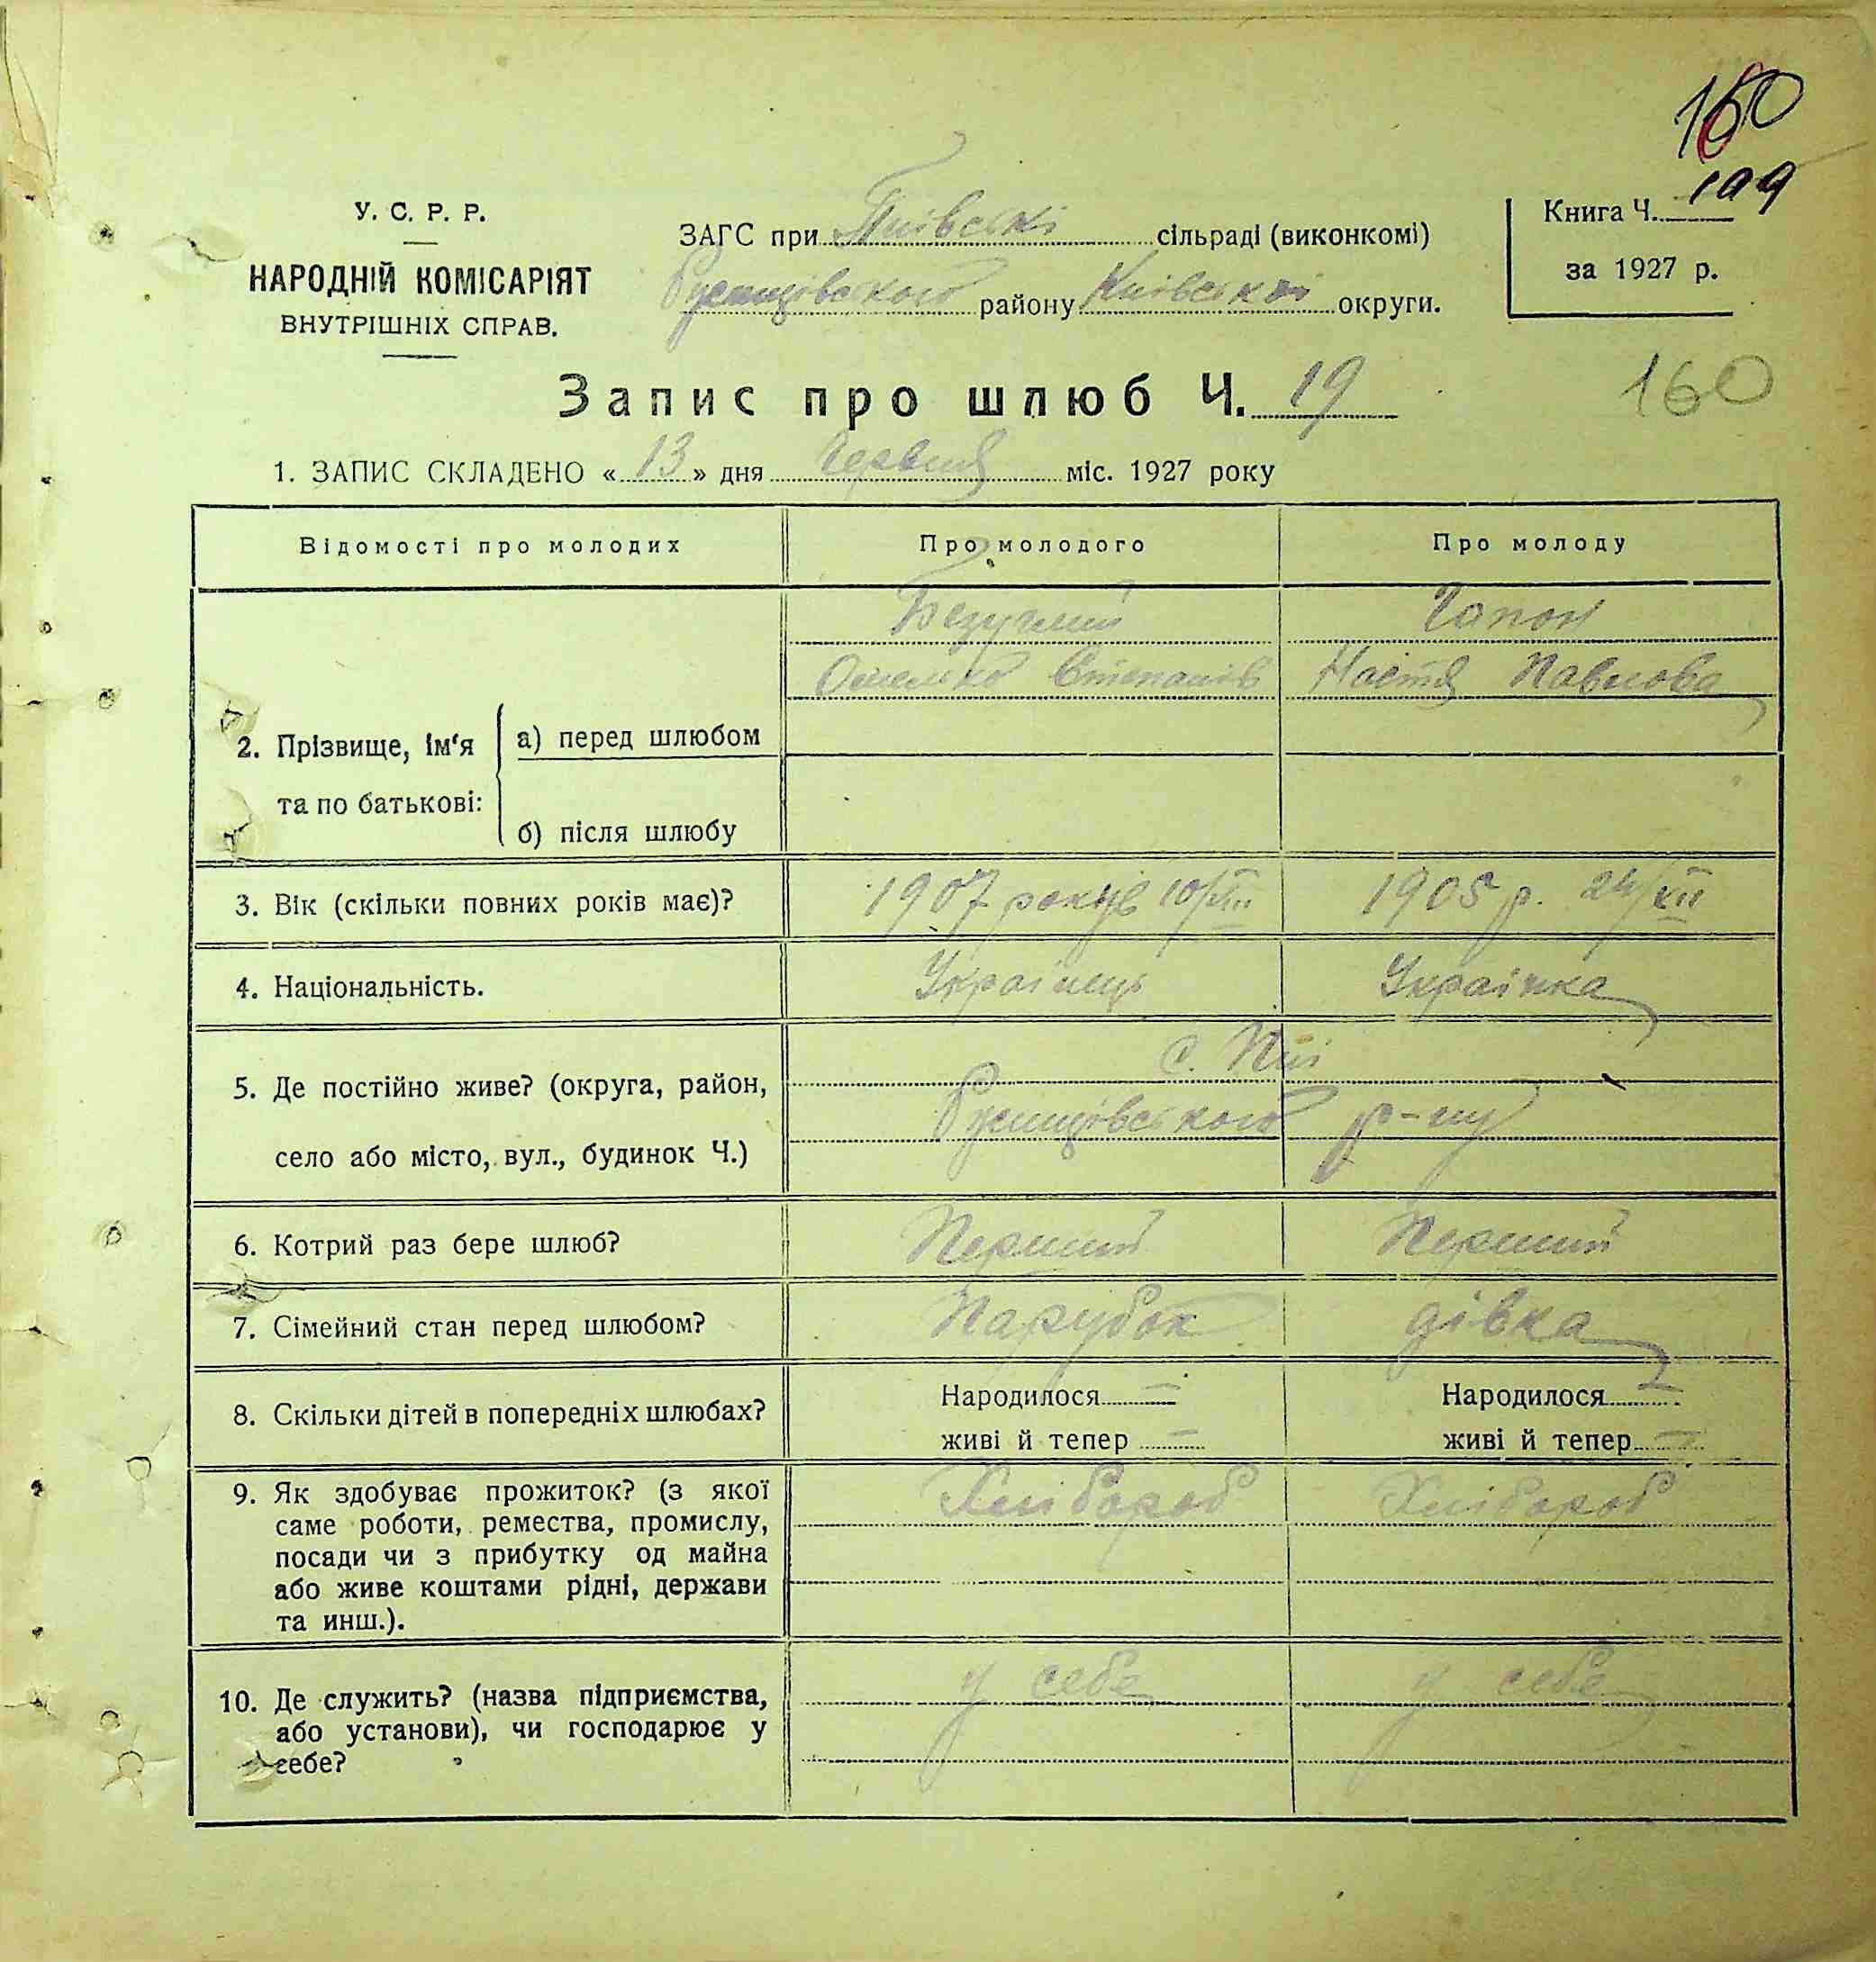 160
199
У. С. Р. Р.
НАРОДНІЙ КОМІСАРІЯТ
ВНУТРІШНІХ СПРАВ.
ЗАГС при Пиівські сільраді (виконкомі)
району Київської округи.
Книга Ч.
за 1927 р.
Запис про шлюб Ч. 19
160
1. ЗАПИС СКЛАДЕНО « 13 » дня Червня міс. 1927 року
Відомості про молодих Про молодого Про молоду
2. Прізвище, ім'я та по батькові:
а) перед шлюбом
Безуглий Гапон
Омелько Степанів Настя Павлова
б) після шлюбу
3. Вік (скільки повних років має)? 1907 років 10/VIII 1905 р. 24/XII
4. Національність. Украінець Украінка
5. Де постійно живе? (округа, район, с. Пиі
село або місто, вул., будинок Ч.) р-ну
6. Котрий раз бере шлюб? Перший Перший
7. Сімейний стан перед шлюбом? Парубок дівка
8. Скільки дітей в попередніх шлюбах? Народилося — Народилося —
живі й тепер — живі й тепер —
9. Як здобуває прожиток? (з якої Хлібороб Хлібороб
саме роботи, ремества, промислу,
посади чи з прибутку од майна
або живе коштами рідні, держави
та инш.).
10. Де служить? (назва підприємства, у себе у себе
або установи), чи господарює у
себе?